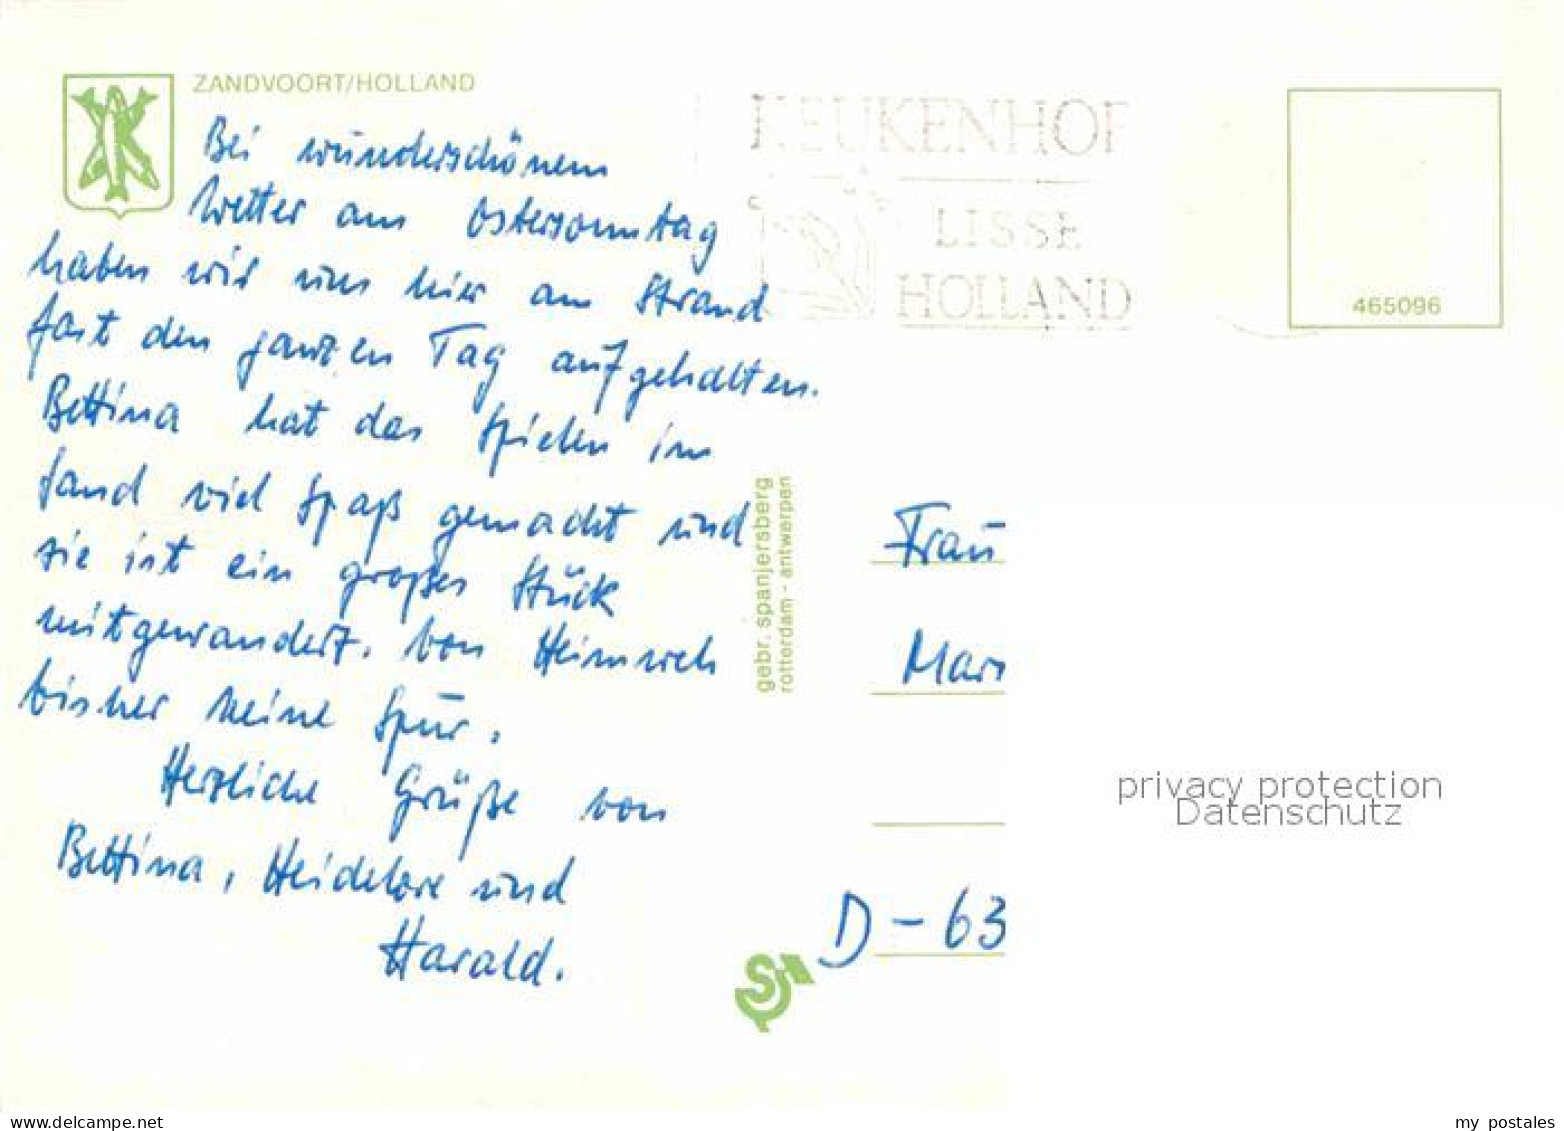 ZANDVOORT/HOLLAND
Bei wunderschönem
Wetter am Ostersonntag
haben wir uns hier am Strand
fast den ganzen Tag aufgehalten.
Bettina hat das Spielen im
Sand viel Spaß gemacht und
sie ist ein großes Stück
mitgewandert. Von Heimweh
bisher keine Spur.
Herzliche Grüße von
Bettina, Heidelore und
Harald.
KEUKENHOF
LISSE
HOLLAND
465096
gebr. spanjersberg
rotterdam - antwerpen
Frau
D-63
privacy protection
Datenschutz
my postales